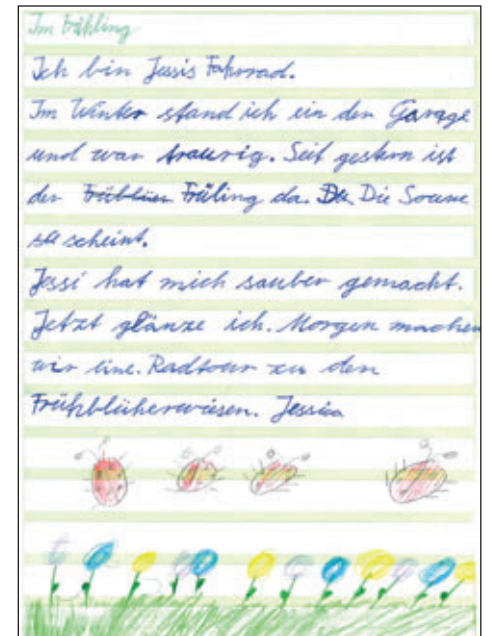 Im Frühling
Ich bin Jessis Fahrrad.
Im Winter stand ich ein der Garage
und war traurig. Seit gestern ist
der Früling da. Die Sonne
scheint.
Jessi hat mich sauber gemacht.
Jetzt glänze ich. Morgen machen
wir eine. Radtour zu den
Frühblüherwiesen. Jessica